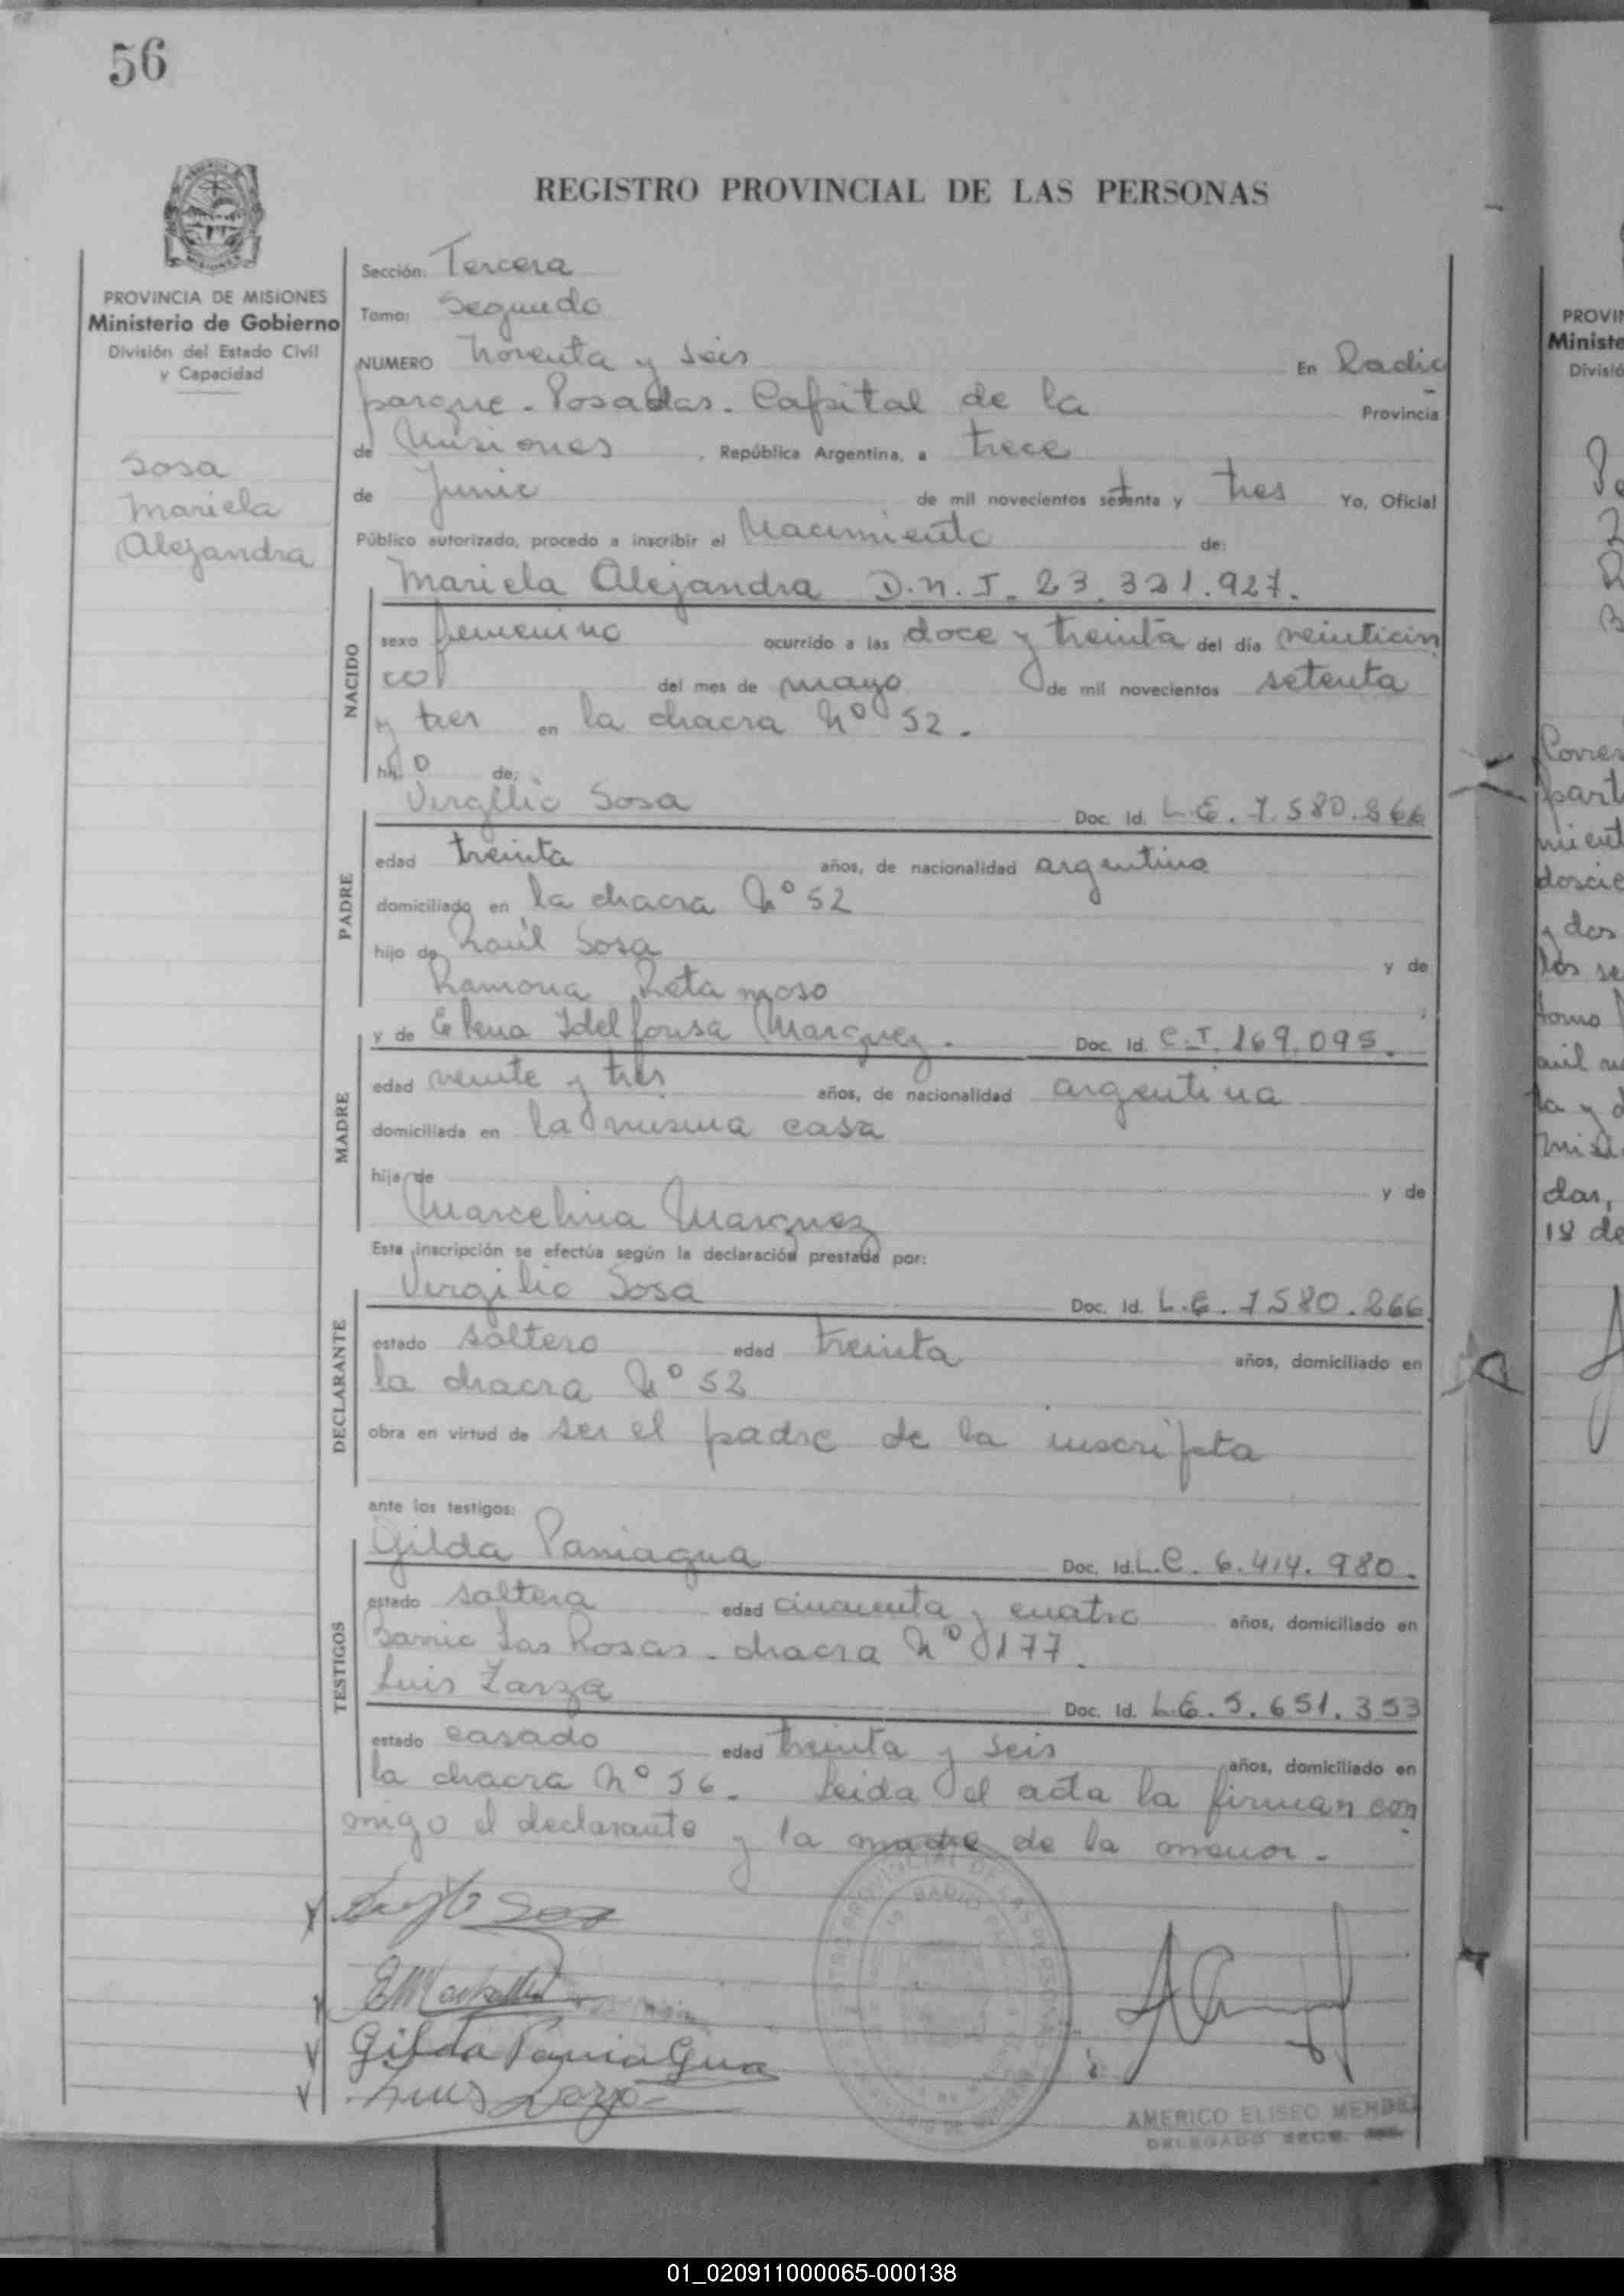 56
REGISTRO PROVINCIAL DE LAS PERSONAS
PROVINCIA DE MISIONES
Ministerio de Gobierno
División del Estado Civil
y Capacidad
Sosa
Mariela
Alejandra
Sección: Tercera
Tomo: Segundo
NUMERO Noventa y seis En Radio
parque - Posadas - Capital de la Provincia
de Misiones, República Argentina, a trece
de Junio de mil novecientos setenta y tres Yo, Oficial
Público autorizado, procedo a inscribir el Nacimiento de:
Mariela Alejandra D.N.I. 23.321.927.
NACIDO
sexo femenino ocurrido a las doce y treinta del día veinticin
co del mes de mayo de mil novecientos setenta
y tres en la chacra Nº 52.
hij o de:
PADRE
Virgilio Sosa Doc. Id. L.E. 7.580.866
edad treinta años, de nacionalidad argentino
domiciliado en la chacra Nº 52
hijo de Raúl Sosa y de
Ramona Retamoso
MADRE
y de Elena Idelfonsa Marquez. Doc. Id. C.I. 169.095.
edad veinte y tres años, de nacionalidad argentina
domiciliada en la misma casa
hija de y de
Marcelina Marquez
Esta inscripción se efectúa según la declaración prestada por:
DECLARANTE
Virgilio Sosa Doc. Id. L.E. 7580.866
estado soltero edad treinta años, domiciliado en
la chacra Nº 52
obra en virtud de ser el padre de la inscripta
ante los testigos:
TESTIGOS
Gilda Paniagua Doc. Id. L.C. 6.414.980.
estado soltera edad cincuenta y cuatro años, domiciliado en
Barrio Las Rosas - chacra Nº 177.
Luis Zarza Doc. Id. L.E. 5.651.353
estado casado edad treinta y seis años, domiciliado en
la chacra Nº 56. Leida el acta la firman con
migo el declarante y la madre de la menor.
Gilda Paniagua
Luis Zarza
AMERICO ELISEO MENDEZ
DELEGADO SECC.
PROVIN
Ministe
Divisió
mient
doscie
y dos
los se
tomo
ta y d
das,
18 de
01_020911000065-000138